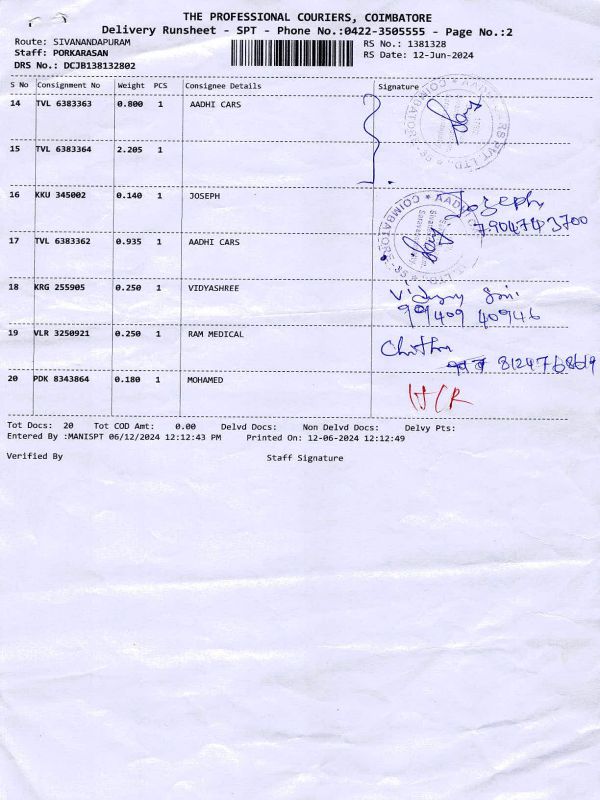 THE PROFESSIONAL COURIERS, COIMBATORE
Delivery Runsheet - SPT - Phone No.:0422-3505555 - Page No.:2
Route: SIVANANDAPURAM RS No.: 1381328
Staff: PORKARASAN RS Date: 12-Jun-2024
DRS No.: DCJB138132802
S No Consignment No Weight PCS Consignee Details Signature
14 TVL 6383363 0.800 1 AADHI CARS
15 TVL 6383364 2.205 1
16 KKU 345002 0.140 1 JOSEPH Joseph
7904743700
17 TVL 6383362 0.935 1 AADHI CARS
18 KRG 255905 0.250 1 VIDYASHREE
99409 40946
19 VLR 3250921 0.250 1 RAM MEDICAL Chithra
8124768619
20 PDK 8343864 0.180 1 MOHAMED
Tot Docs: 20 Tot COD Amt: 0.00 Delvd Docs: Non Delvd Docs: Delvy Pts:
Entered By :MANISPT 06/12/2024 12:12:43 PM Printed On: 12-06-2024 12:12:49
Verified By Staff Signature